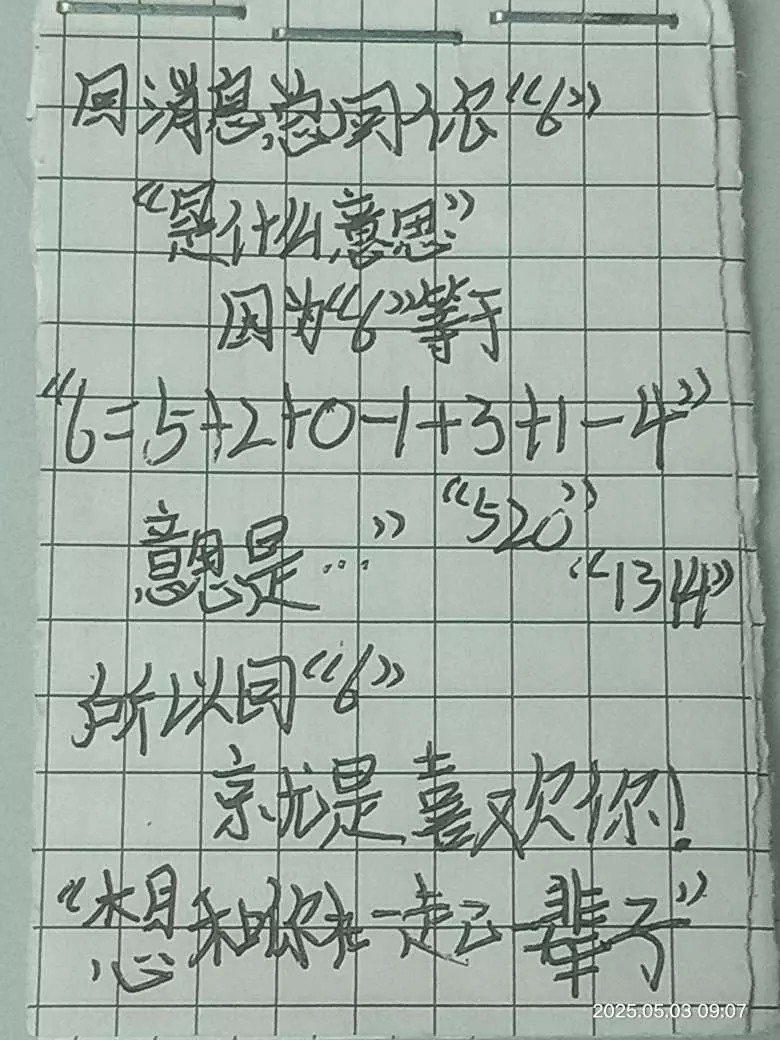 回消息总回个很“6”
“是什么意思”
因为“6”等于
“6=5+2+0-1+3+1-4”
意思是…” “520”
“1314”
所以回“6”
就是喜欢你!
“想和你在一起一辈子”
2025.05.03 09:07